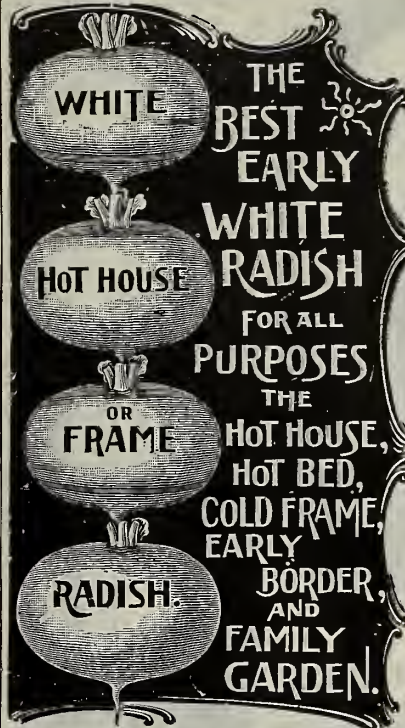 WHITE
HOT HOUSE
OR
FRAME
RADISH.
THE
BEST
EARLY
WHITE
RADISH
FOR ALL
PURPOSES,
THE
HOT HOUSE,
HOT BED,
COLD FRAME,
EARLY
BORDER,
AND
FAMILY
GARDEN.